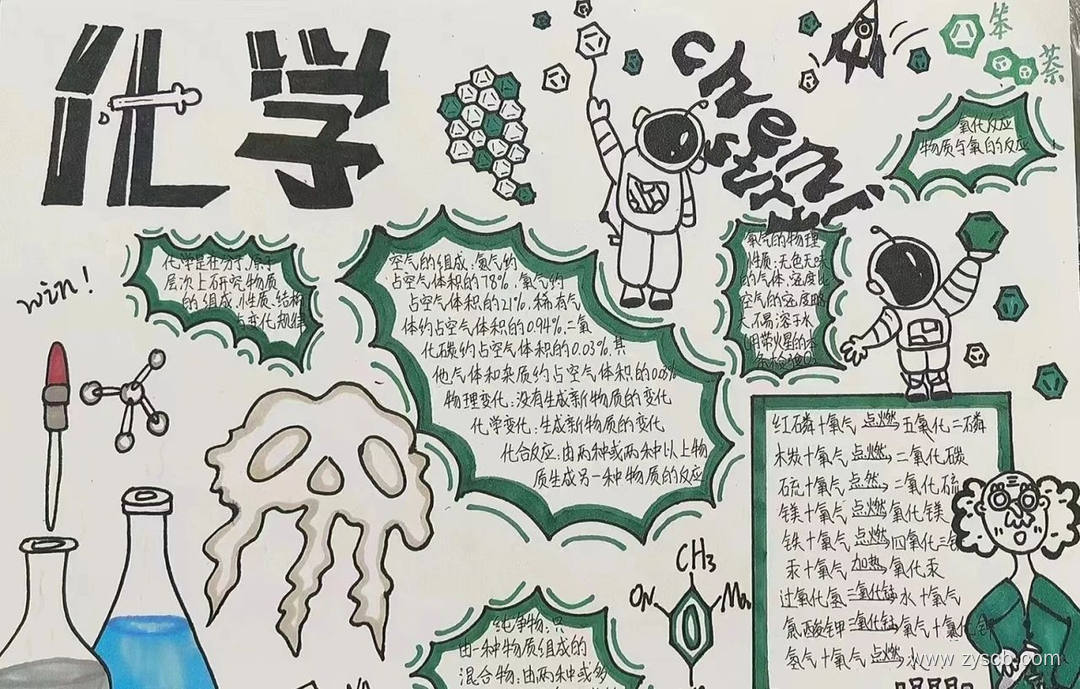 化学
chemistry
笨
萘
氧化反应
物质与氧的反应
win!
化学是在分子、原子
层次上研究物质
的组成、性质、结构
与变化规律
空气的组成:氮气约
占空气体积的78%.氧气约
占空气体积的21%.稀有气
体约占空气体积的0.94%.二氧
化碳约占空气体积的0.03%.其
他气体和杂质约占空气体积的0.03%
物理变化:没有生成新物质的变化
化学变化:生成新物质的变化
化合反应:由两种或两种以上物
质生成另一种物质的反应
氧气的物理
性质:无色无味
的气体.密度比
空气的密度略
大.不易溶于水
用带火星的木
条检验O₂
红磷+氧气 点燃 五氧化二磷
木炭+氧气 点燃 二氧化碳
硫+氧气 点燃 二氧化硫
镁+氧气 点燃 氧化镁
铁+氧气 点燃 四氧化三铁
汞+氧气 加热 氧化汞
过氧化氢 二氧化锰 水+氧气
氯酸钾 二氧化锰 氧气+氯化钾
氢气+氧气 点燃 水
CH₃
纯净物:只
由一种物质组成的
混合物:由两种或多
www.zyscb.com